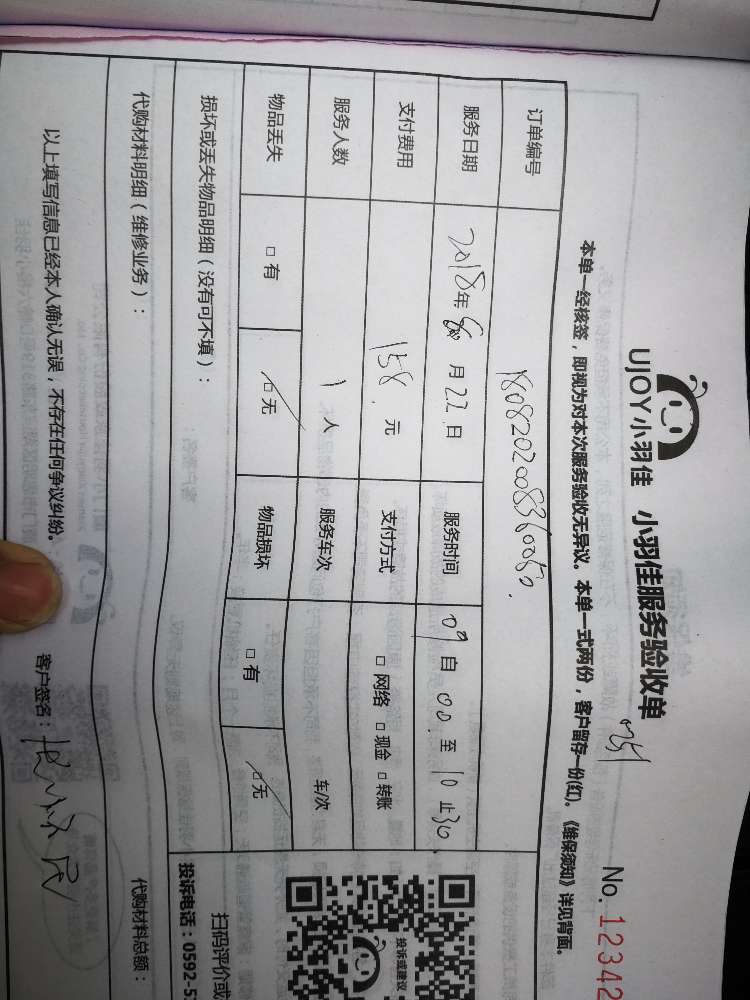 UJOY小羽佳 小羽佳服务验收单
No. 12342
本单一经核签，即视为对本次服务验收无异议。本单一式两份，客户留存一份(红)。《维保须知》详见背面。
订单编号 1808202008360050
服务日期 2018年8月22日 服务时间 09自00至10止30
支付费用 158元 支付方式 □网络 □现金 □转账
服务人数 1人 服务车次 车/次
物品丢失 □有 □无 物品损坏 □有 □无
损坏或丢失物品明细（没有可不填）：
代购材料明细（维修业务）： 代购材料总额：
以上填写信息已经本人确认无误，不存在任何争议纠纷。 客户签名：
投诉或建议
扫码评价或
投诉电话：0592-5